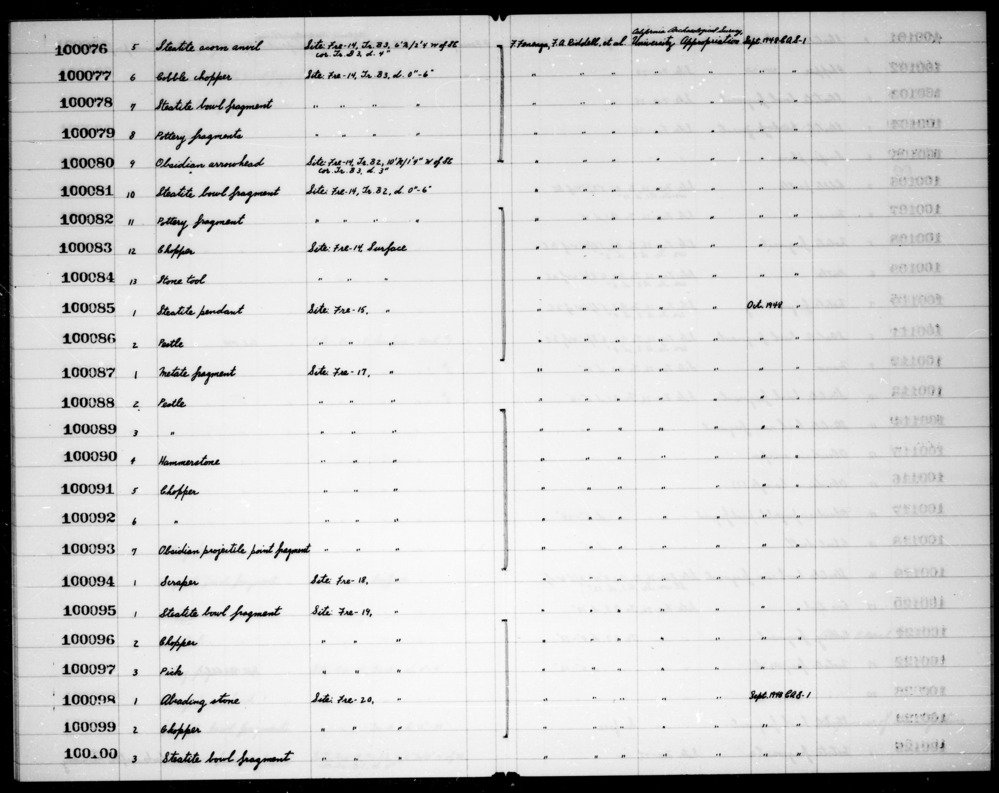 100076 5 Steatite acorn anvil Site: Fre-14, Tr. B3, 6"N/2'4 W of SE cor. Tr. B3, d. 4" F. Fenenga, F.A. Riddell, et al California Archaeological Survey, University Appropriation Sept. 1948 CAS-1
100077 6 Cobble chopper Site: Fre-14, Tr. B3, d. 0"-6" " " " " " " " "
100078 7 Steatite bowl fragment " " " " " " " " " " " "
100079 8 Pottery fragments " " " " " " " " " " " "
100080 9 Obsidian arrowhead Site: Fre-14, Tr. B2, 10"N/1'9" W of SE cor. Tr. B3, d. 3" " " " " " " " "
100081 10 Steatite bowl fragment Site: Fre-14, Tr. B2, d. 0"-6" " " " " " " " "
100082 11 Pottery fragment " " " " " " " " " " " "
100083 12 Chopper Site: Fre-14, Surface " " " " " " " "
100084 13 Stone tool " " " " " " " " " " "
100085 1 Steatite pendant Site: Fre-15, " " " " " " " Oct. 1948 "
100086 2 Pestle " " " " " " " " " " "
100087 1 Metate fragment Site: Fre-17, " " " " " " " " "
100088 2 Pestle " " " " " " " " " " "
100089 3 " " " " " " " " " " " "
100090 4 Hammerstone " " " " " " " " " " "
100091 5 Chopper " " " " " " " " " " "
100092 6 " " " " " " " " " " " "
100093 7 Obsidian projectile point fragment " " " " " " " " " " "
100094 1 Scraper Site: Fre-18, " " " " " " " " "
100095 1 Steatite bowl fragment Site: Fre-19, " " " " " " " " "
100096 2 Chopper " " " " " " " " " " "
100097 3 Pick " " " " " " " " " " "
100098 1 Abrading stone Site: Fre-20, " " " " " " " Sept. 1948 CAS-1
100099 2 Chopper " " " " " " " " " " "
100100 3 Steatite bowl fragment " " " " " " " " " " "